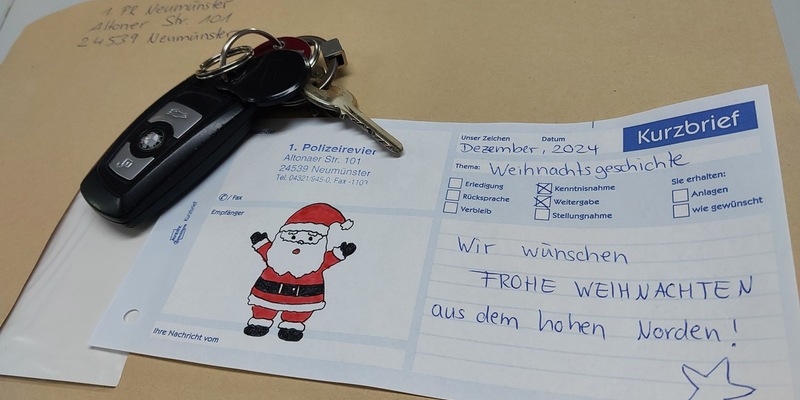 1. PR Neumünster
Altonaer Str. 101
24539 Neumünster
1. Polizeirevier
Altonaer Str. 101
24539 Neumünster
Tel. 04321/945-0, Fax -1107
✆/ Fax
Empfänger
Ihre Nachricht vom
Kurzbrief
Unser Zeichen Datum
Dezember, 2024
Kurzbrief
Thema: Weihnachtsgeschichte
Erledigung
Rücksprache
Verbleib
Kenntnisnahme
Weitergabe
Stellungnahme
Sie erhalten:
Anlagen
wie gewünscht
Wir wünschen
FROHE WEIHNACHTEN
aus dem hohen Norden!